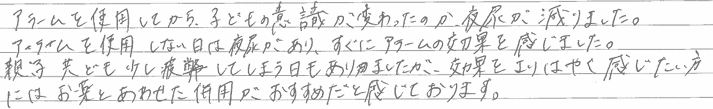 アラームを使用してから、子どもの意識が変わったのか夜尿が減りました。
アラームを使用しない日は夜尿があり、すぐにアラームの効果を感じました。
親子共ども少し疲弊してしまう日もありましたが、効果をよりはやく感じたい方
にはお薬とあわせた併用がおすすめだと感じております。